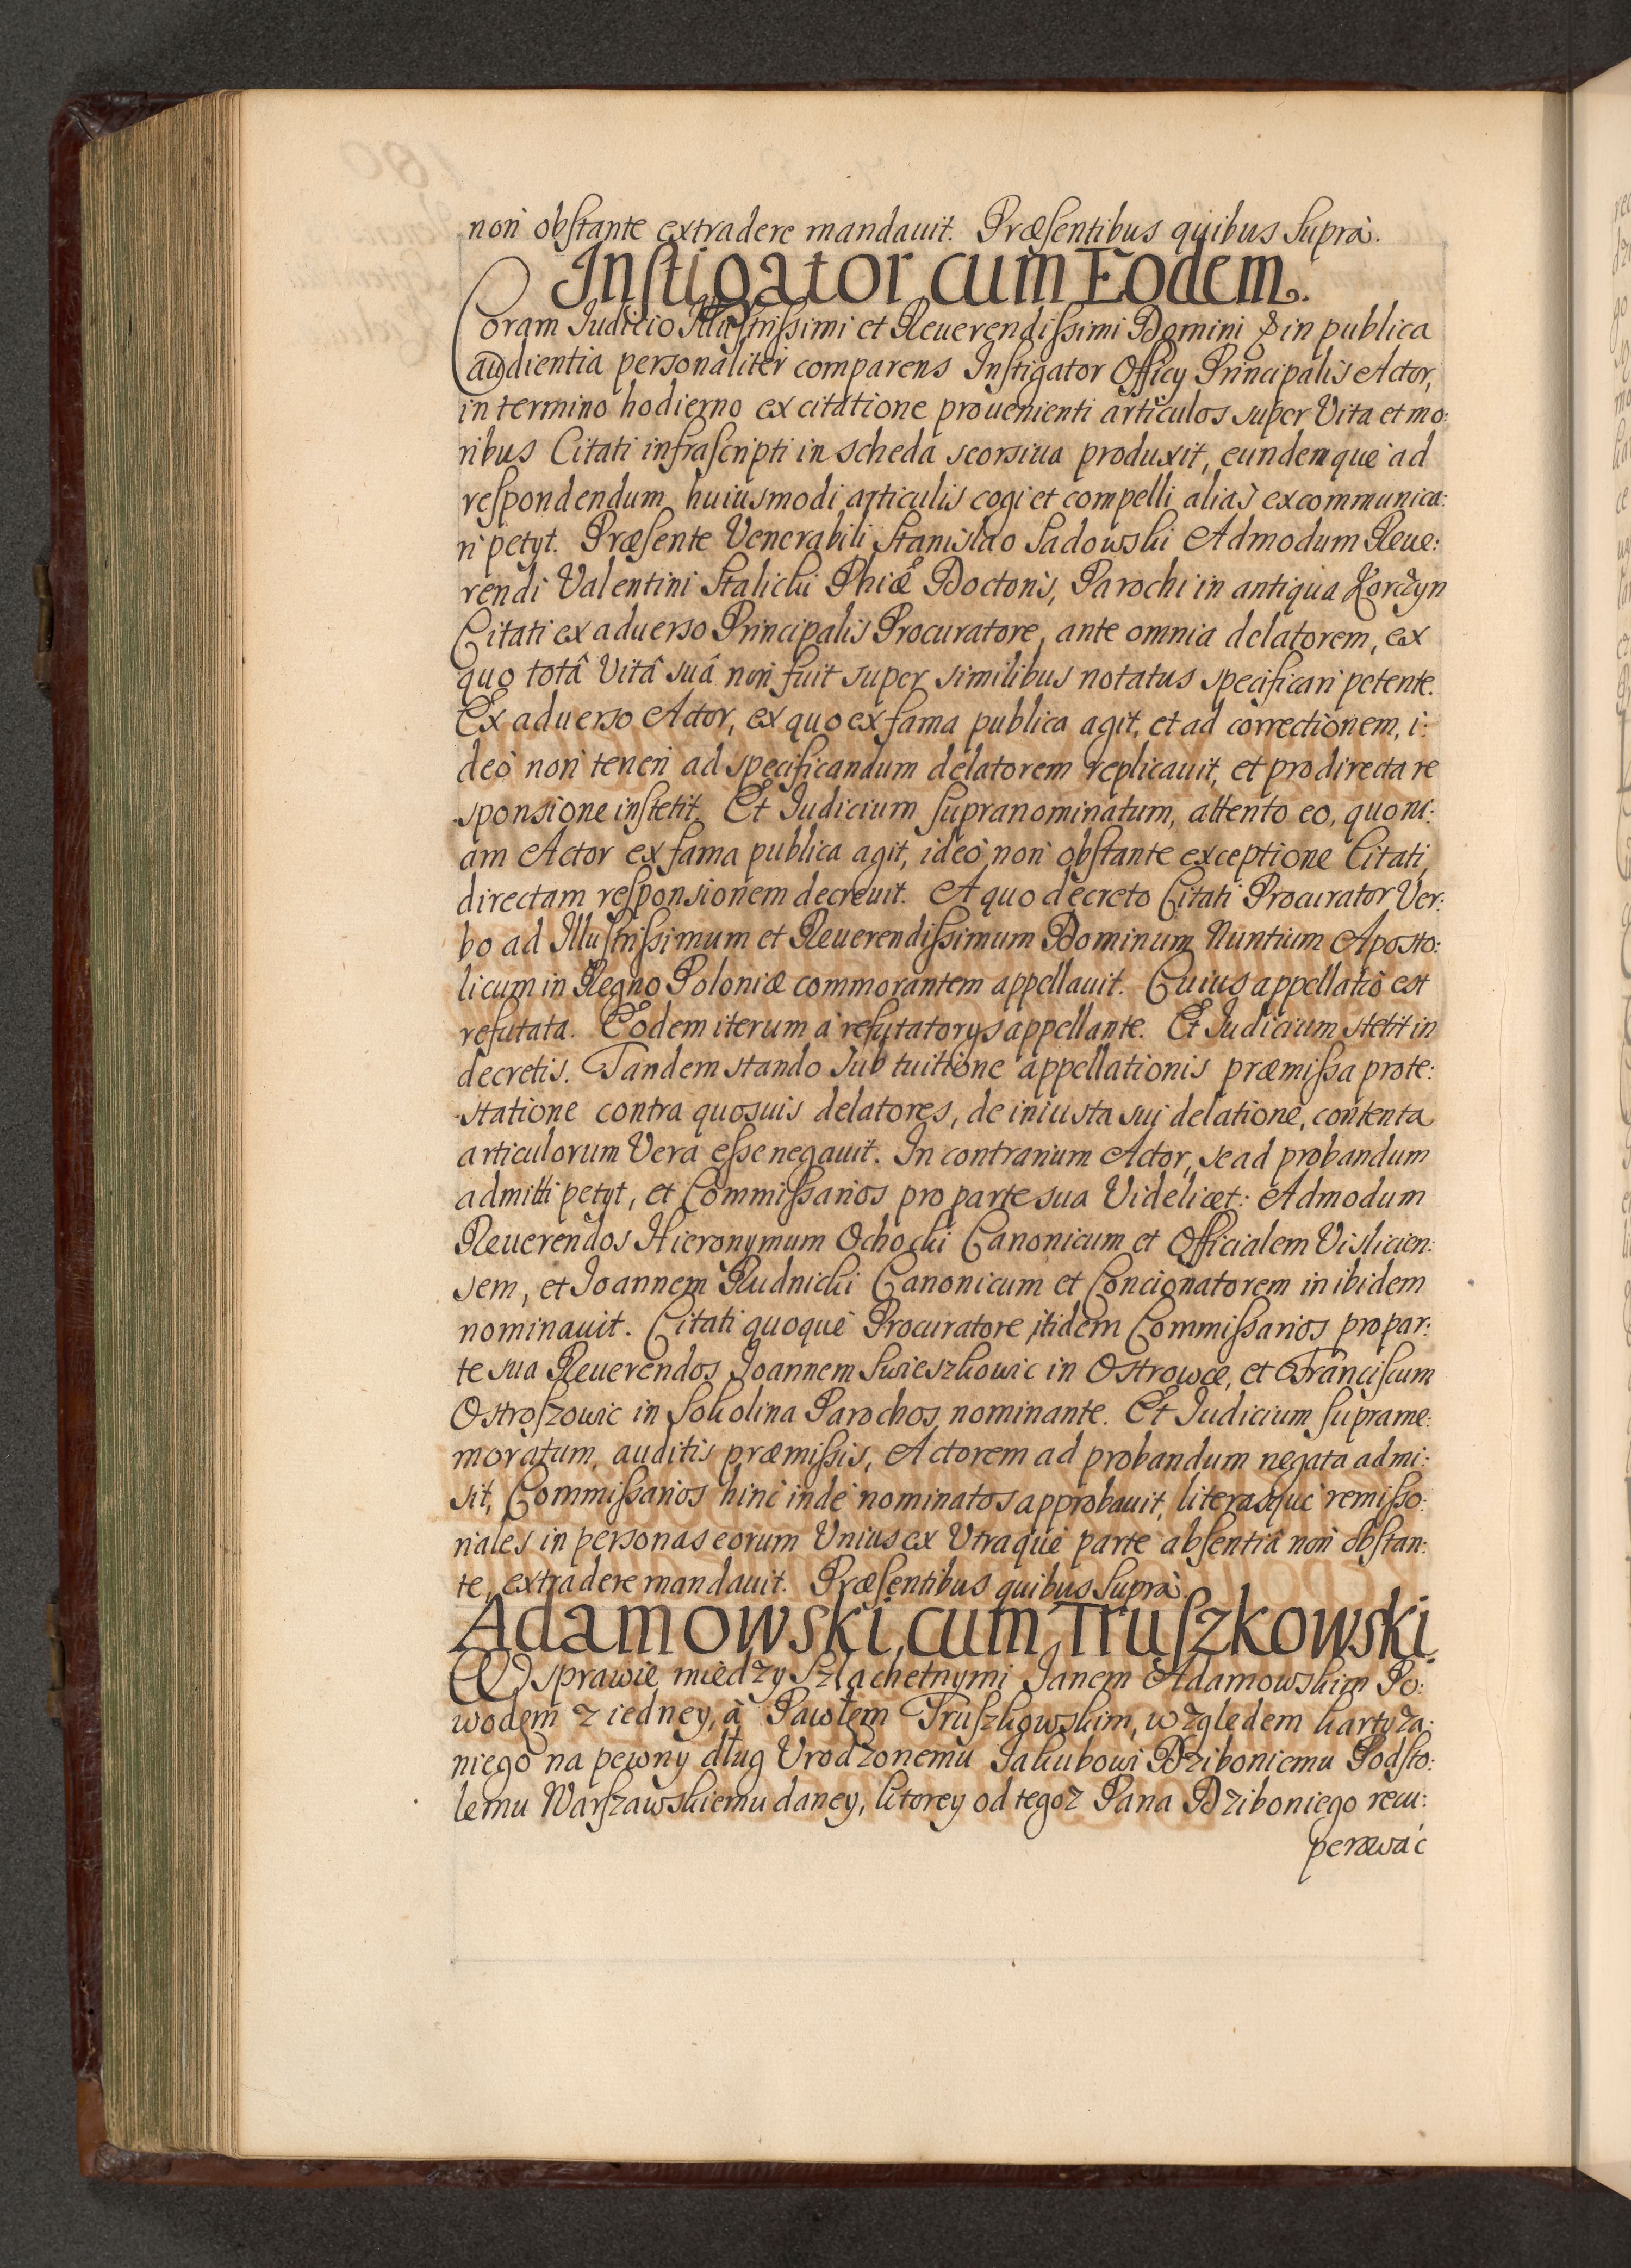 non obstante extradere mandauit. Præsentibus quibus supra.
Instigator cum Eodem.
Coram Iudicio Illustrissimi et Reuerendissimi Domini & in publica
audientia personaliter comparens Instigator Officÿ Principalis Actor,
in termino hodierno ex citatione prouenienti articulos super Vita et mo:
ribus Citati infrascripti in scheda seorsiua produxit, eundemque ad
respondendum huiusmodi articulis cogi et compelli alias excommunica:
ri petÿt. Præsente Venerabili Stanislao Sadowski Admodum Reue:
rendi Valentini Stalicki Phiæ Doctoris, Parochi in antiqua Korczyn
Citati ex aduerso Principalis Procuratore, ante omnia delatorem, ex
quo totâ Vitâ suâ non fuit super similibus notatus specificari petente.
Ex aduerso Actor, ex quo ex fama publica agit, et ad correctionem, i:
deò non teneri ad specificandum delatorem replicauit, et pro directa re
sponsione institit. Et Iudicium supranominatum, attento eo, quoni:
am Actor ex fama publica agit, ideò non obstante exceptione Citati,
directam responsionem decreuit. A quo decreto Citati Procurator Ver:
bo ad Illustrissimum et Reuerendissimum Dominum Nuntium Aposto:
licum in Regno Poloniæ commorantem appellauit. Cuius appellatio est
refutata. Eodem iterum à refutatorÿs appellante. Et Iudicium stetit in
decretis. Tandem stando sub tuitione appellationis præmissa prote:
statione contra quosuis delatores, de iniusta sui delatione, contenta
articulorum Vera esse negauit. In contrarium Actor, se ad probandum
admitti petÿt, et Commissarios pro parte sua Videlicet: Admodum
Reuerendos Hieronymum Ochocki Canonicum et Officialem Vislicien:
sem, et Ioannem Rudnicki Canonicum et Concionatorem in ibidem
nominauit. Citati quoque Procuratore itidem Commissarios pro par:
te sua Reuerendos Ioannem Swieszkowic in Ostrowce, et Franciscum
Ostroszowic in Sokolina Parochos nominante. Et Iudicium supra me:
moratum, auditis præmissis, Actorem ad probandum negata admi:
sit, Commissarios hinc inde nominatos approbauit, literasque remisso:
riales in personas eorum Unius ex Utraque parte absentiâ non obstan:
te, extradere mandauit. Præsentibus quibus supra.
Adamowski cum Truszkowski
W sprawie między Szlachetnymi Janem Adamowskim Po:
wodem z iedney, à Pawłem Truszkowskim, względem karty za:
niego na pewny dług Urodzonemu Jakubowi Dziboniemu Podsto:
lemu Warszawskiemu daney, ktorey od tegoz Pana Dziboniego recu:
perować